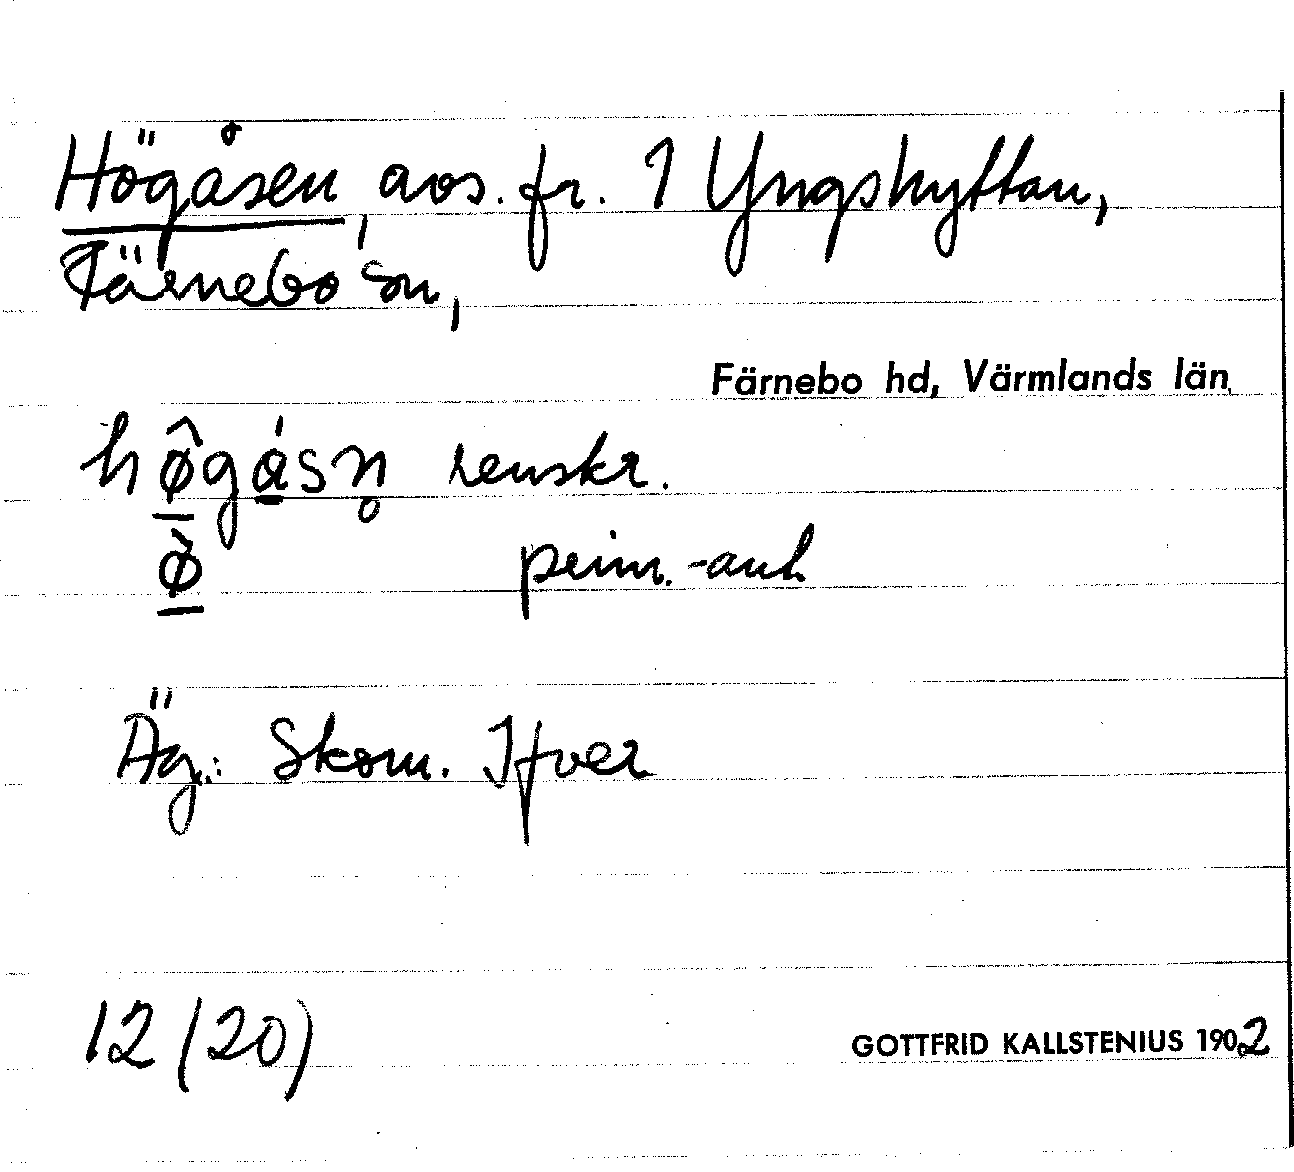 Högåsen, avs. fr. 1 Yngshyttan,
Färnebo sn,
Färnebo hd, Värmlands län
hø̂gásn̥ renskr.
ø̀ prim.-ant.
Äg.: Skom. Ifver
12 (20)
GOTTFRID KALLSTENIUS 1902